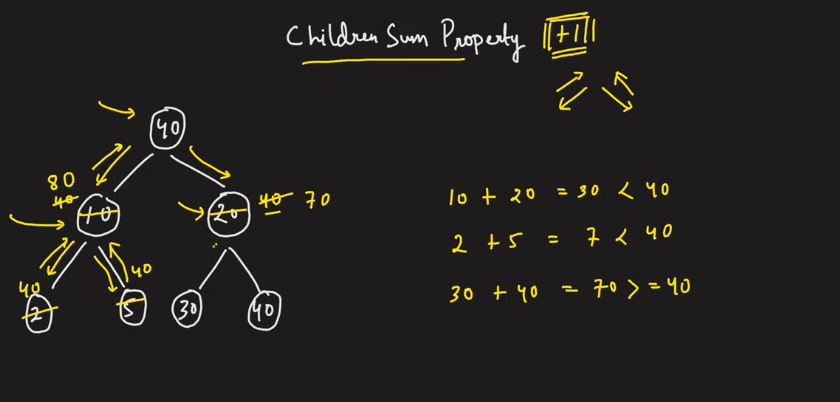 Children Sum Property +1
40
80
40
10
20 40 70
40 40
2 5 30 40
10 + 20 = 30 < 40
2 + 5 = 7 < 40
30 + 40 = 70 > = 40